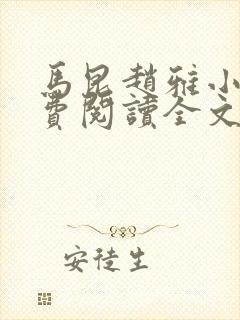 馬昆趙雅小
費閱讀全文
安徒生